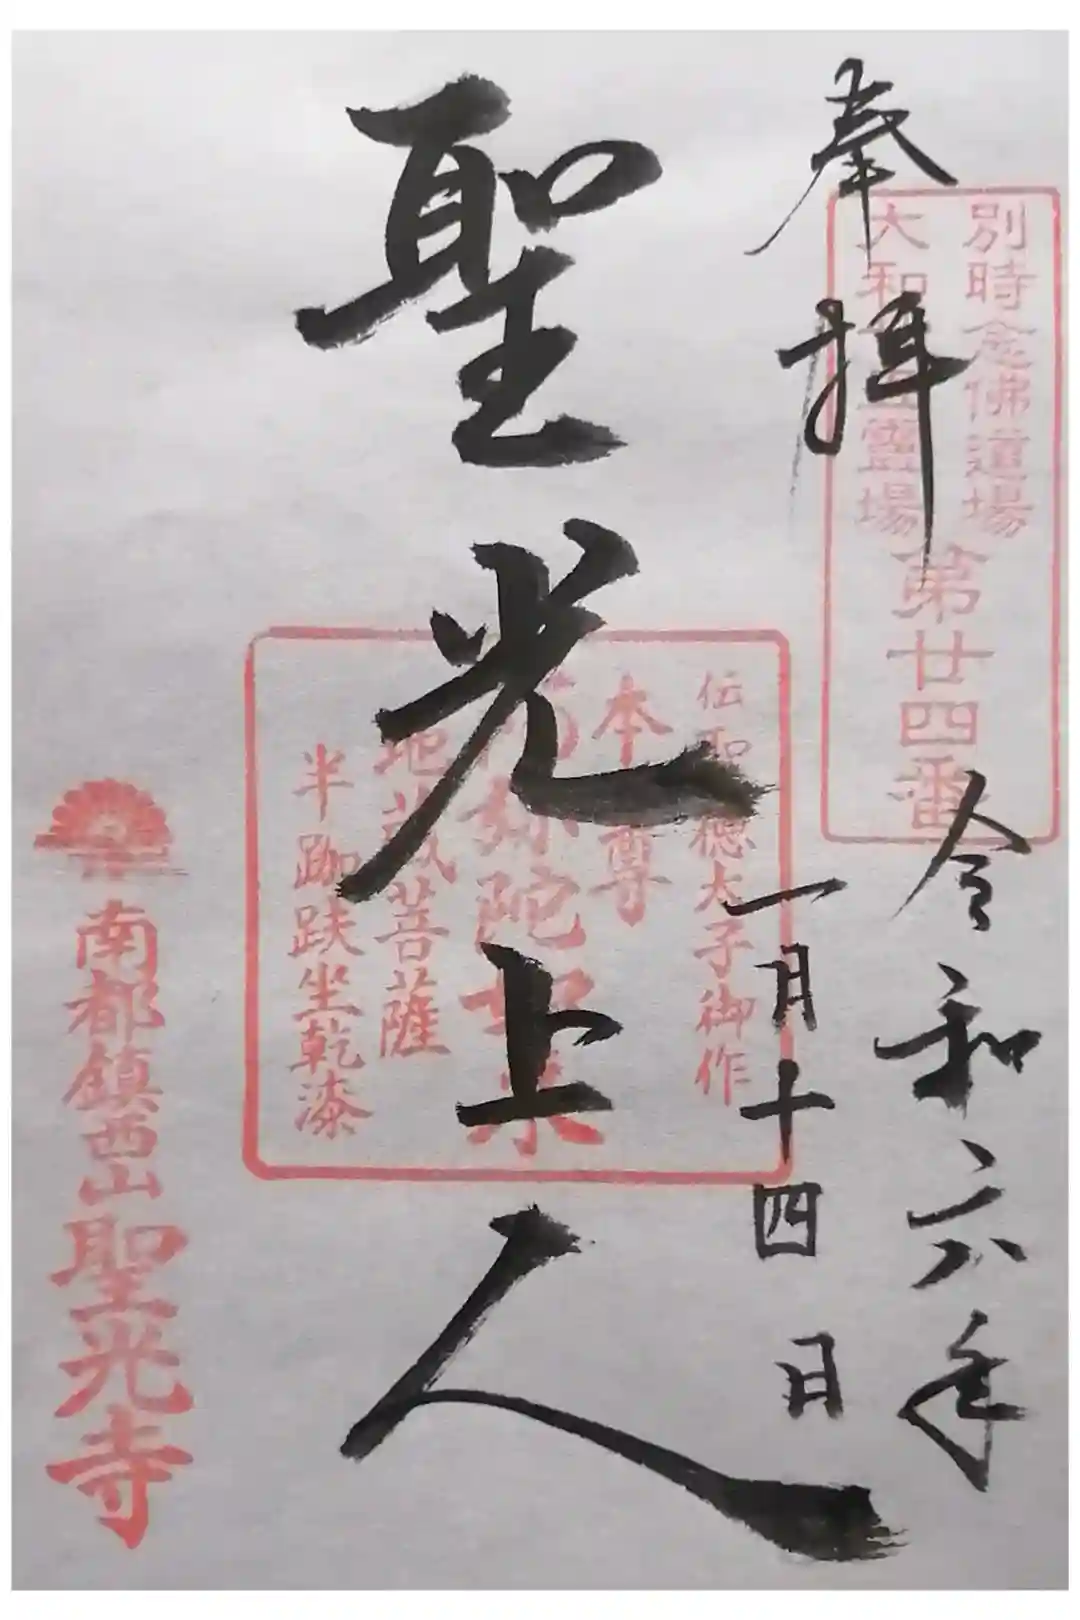 奉拝
別時念佛道場
大和 霊場
第廿四番
令和六年
一月十四日
聖光上人
伝聖徳太子御作
本尊
弥陀如来
地蔵菩薩
半跏趺坐乾漆
南都鎮西山聖光寺